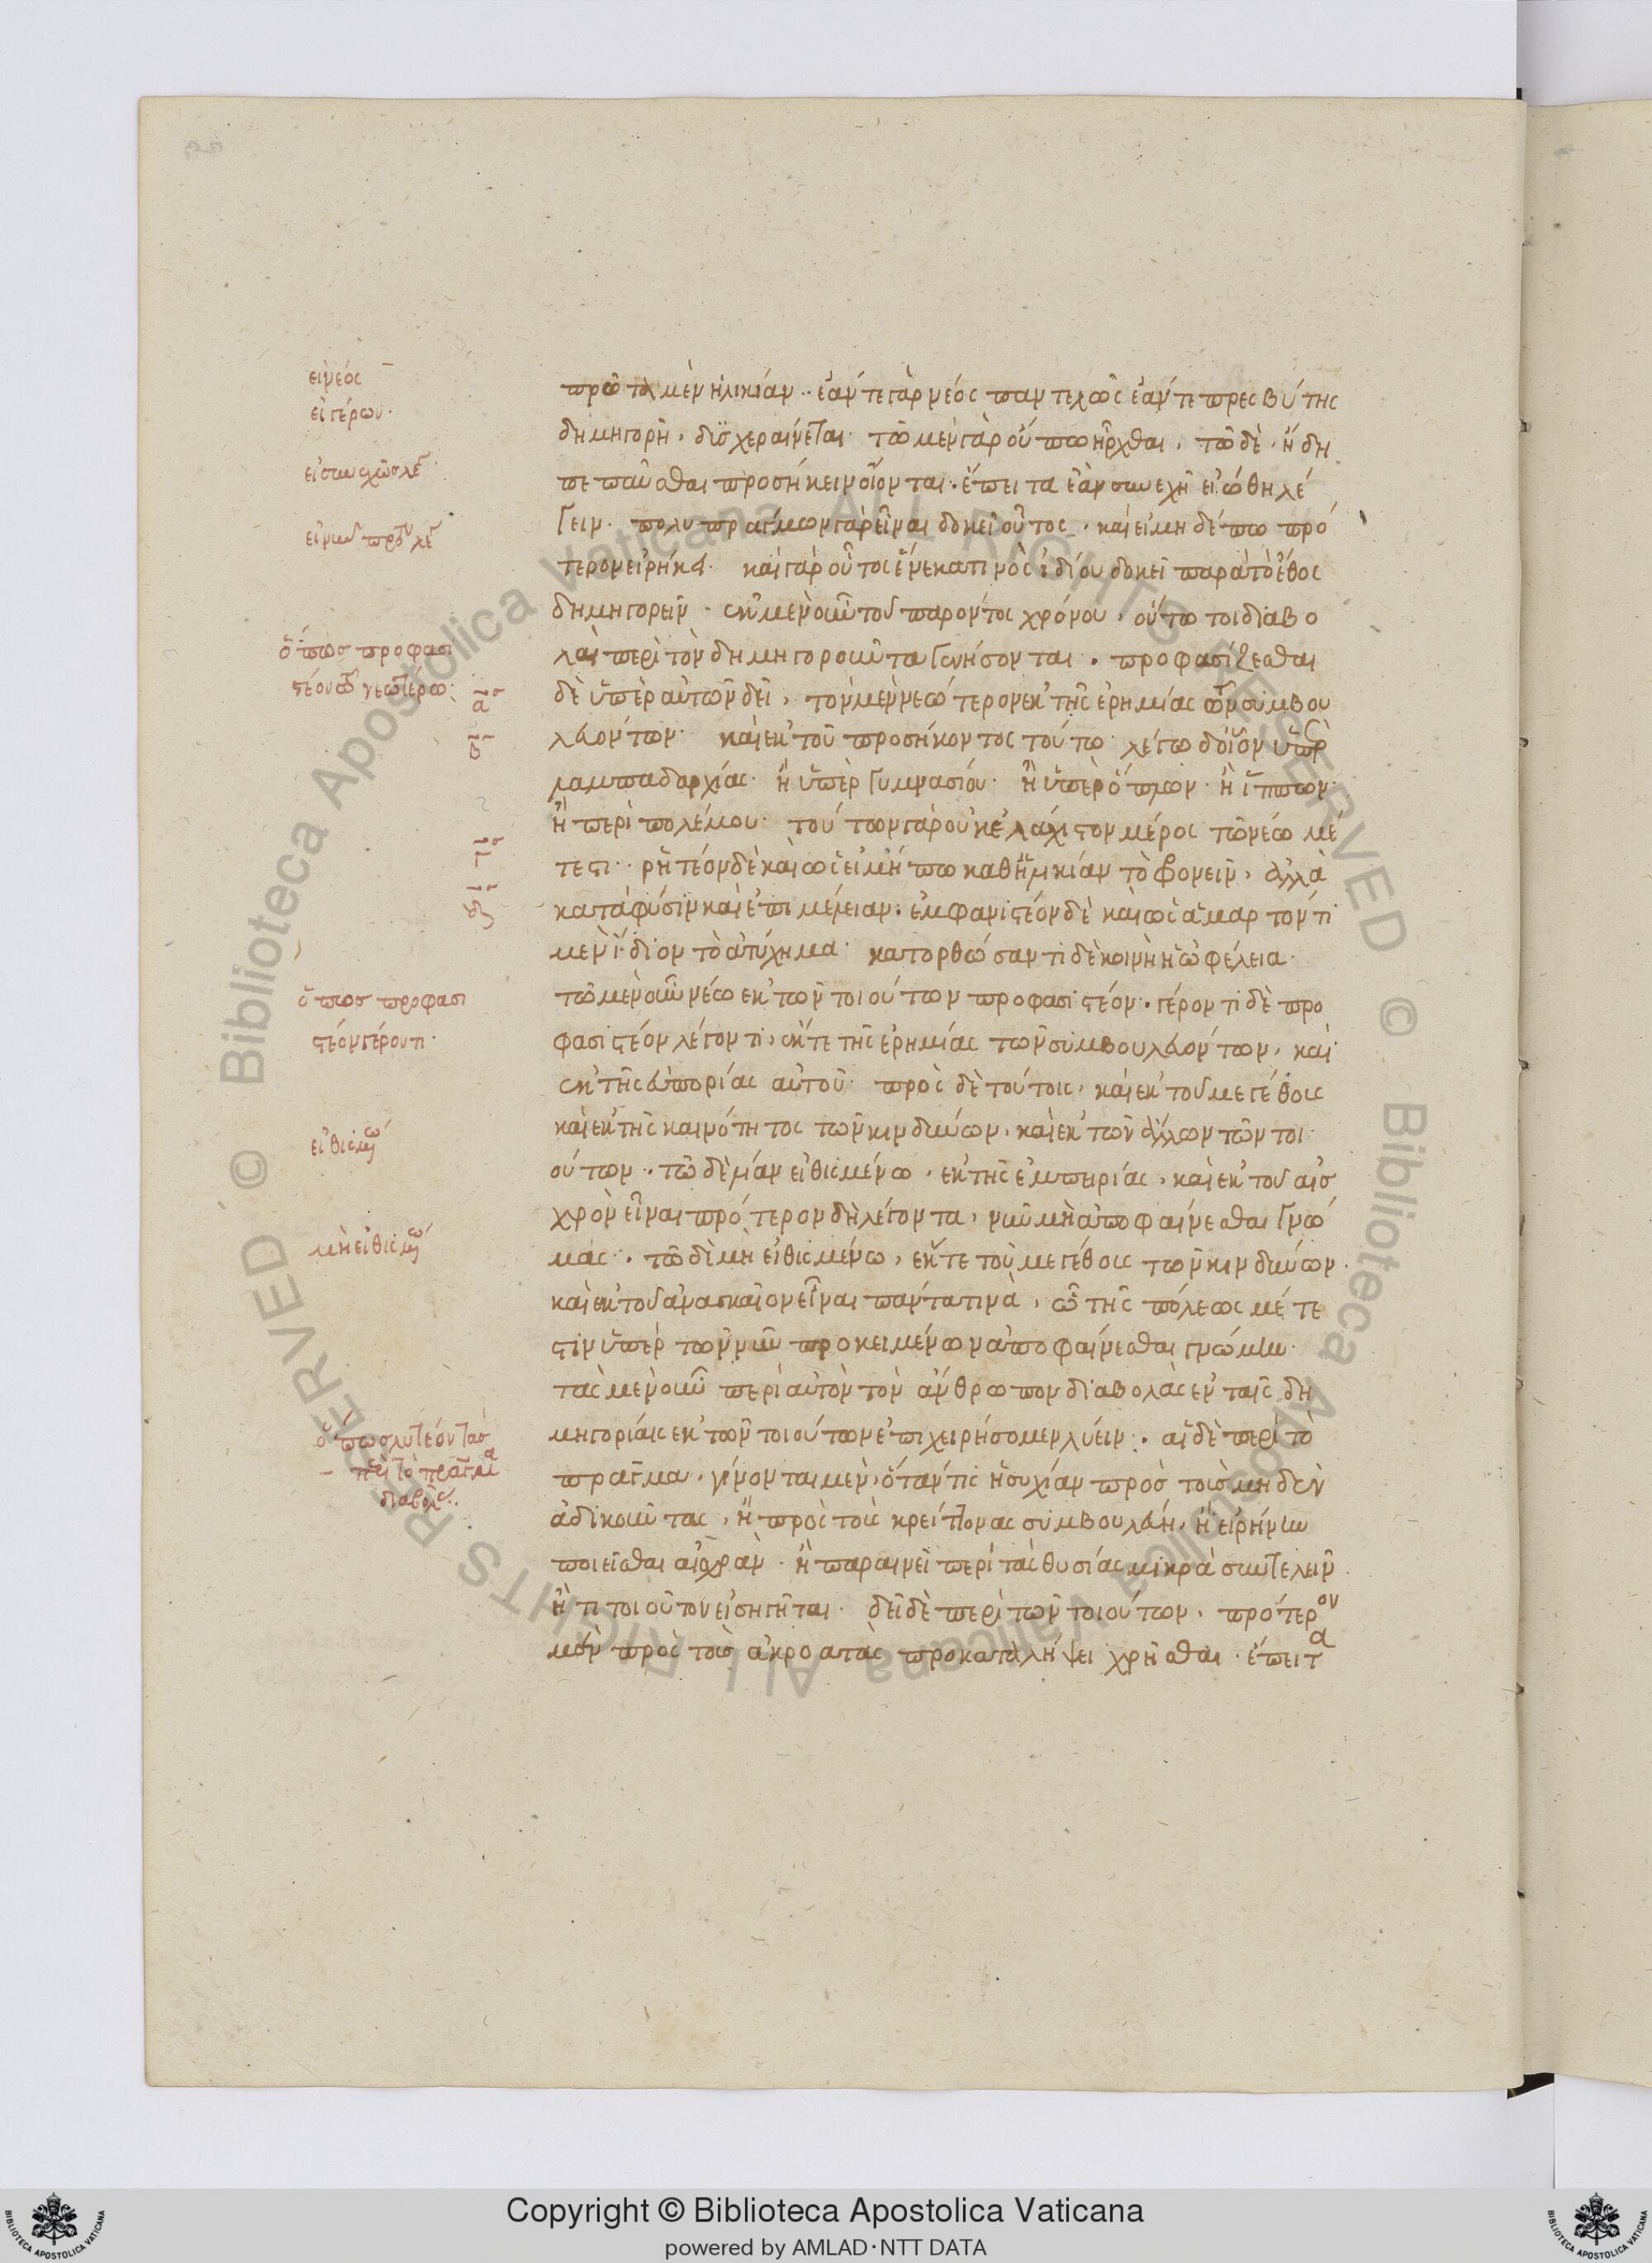 εἰ νέος
εἰ γέρων·
εἰ συνεχῶς λέ
εἰ νῦν πρῶτον λέ
ὅπως προφασι
στέον τῷ νεωτέρω·
α
β
γ
δ
ὅπως προφασι
στέον γέροντι·
εἰθισμένω
μὴ εἰθισμένω
ὅπως λυτέον τὰς
περὶ τὸ πρᾶγμα
διαβολάς·
πρῶτον μὲν ἡλικίαν· ἐάν τε γὰρ νέος παντελῶς ἐάν τε πρεσβύτης
δημηγορῆ, δυσχεραίνεται· τῶ μὲν γὰρ οὔπω ἦρχθαι, τῶ δὲ, ἤδη
πεπαῦσθαι προσήκειν οἴονται· ἔπειτα ἐὰν συνεχῆ εἰώθη λέ
γειν· πολυπράγμων γὰρ εἶναι δοκεῖ οὗτος· καὶ εἰ μηδέπω πρό
τερον εἴρηκε· καὶ γὰρ οὗτος ἕνεκά τινος ἰδίου δοκεῖ παρὰ τὸ ἔθος
δημηγορεῖν· ἐκ μὲν οὖν τοῦ παρόντος χρόνου, οὕτω τοι διαβο
λαὶ περὶ τὸν δημηγοροῦντα γενήσονται· προφασίζεσθαι
δὲ ὑπὲρ αὐτῶν δεῖ, τὸν μὲν νεώτερον ἐκ τῆς ἐρημίας τῶν συμβου
λευόντων· καὶ ἐκ τοῦ προσήκοντος τούτω· λέγω δ' οἷον ὑπὲρ
λαμπαδαρχίας· ἢ ὑπὲρ γυμνασίου· ἢ ὑπὲρ ὅπλων· ἢ ἵππων·
ἢ περὶ πολέμου· τούτων γὰρ οὐκ ἐλάχιστον μέρος τῶ νέω μέ
τεστι· ῥητέον δὲ καὶ ὡς εἰ μήπω καθ' ἡλικίαν τὸ φρονεῖν, ἀλλὰ
κατὰ φύσιν καὶ ἐπιμέλειαν· ἐμφανιστέον δὲ καὶ ὡς ἁμαρτόντι
μὲν ἴδιον τὸ ἀτύχημα· κατορθώσαντι δὲ κοινὴ ἡ ὠφέλεια·
τῶ μὲν οὖν νέω ἐκ τῶν τοιούτων προφασιστέον· γέροντι δὲ προ
φασιστέον λέγοντι, ἔκ τε τῆς ἐρημίας τῶν συμβουλευόντων, καὶ
ἐκ τῆς ἐμπορίας αὐτοῦ· πρὸς δὲ τούτοις, καὶ ἐκ τοῦ μεγέθους
καὶ ἐκ τῆς καινότητος τῶν κινδύνων, καὶ ἐκ τῶν ἄλλων τῶν τοι
ούτων· τῶ δὲ λίαν εἰθισμένω, ἐκ τῆς ἐμπειρίας, καὶ ἐκ τοῦ αἰσ
χρὸν εἶναι πρότερον δὴ λέγοντα, νῦν μὴ ἀποφαίνεσθαι γνώ
μας· τῶ δὲ μὴ εἰθισμένω, ἔκ τε τοῦ μεγέθους τῶν κινδύνων·
καὶ ἐκ τοῦ ἀναγκαῖον εἶναι πάντα τινὰ, ὧ τῆς πόλεως μέτε
στιν ὑπὲρ τῶν νῦν προκειμένων ἀποφαίνεσθαι γνώμην·
τὰς μὲν οὖν περὶ αὐτὸν τὸν ἄνθρωπον διαβολὰς ἐν ταῖς δη
μηγορίαις ἐκ τῶν τοιούτων ἐπιχειρήσομεν λύειν· αἱ δὲ περὶ τὸ
πρᾶγμα, γίνονται μὲν, ὅταν τις ἡσυχίαν πρὸς τοὺς μηδὲν
ἀδικοῦντας, ἢ πρὸς τοὺς κρείττονας συμβουλεύη, ἢ εἰρήνην
ποιεῖσθαι αἰσχρὰν· ἢ παραινεῖ περὶ τὰς θυσίας μικρὰ συντελεῖν
ἤ τι τοιοῦτον εἰσηγῆται· δεῖ δὲ περὶ τῶν τοιούτων, πρότερον
μὲν πρὸς τοὺς ἀκροατὰς προκαταλήψει χρῆσθαι· ἔπειτα
Copyright © Biblioteca Apostolica Vaticana
powered by AMLAD·NTT DATA